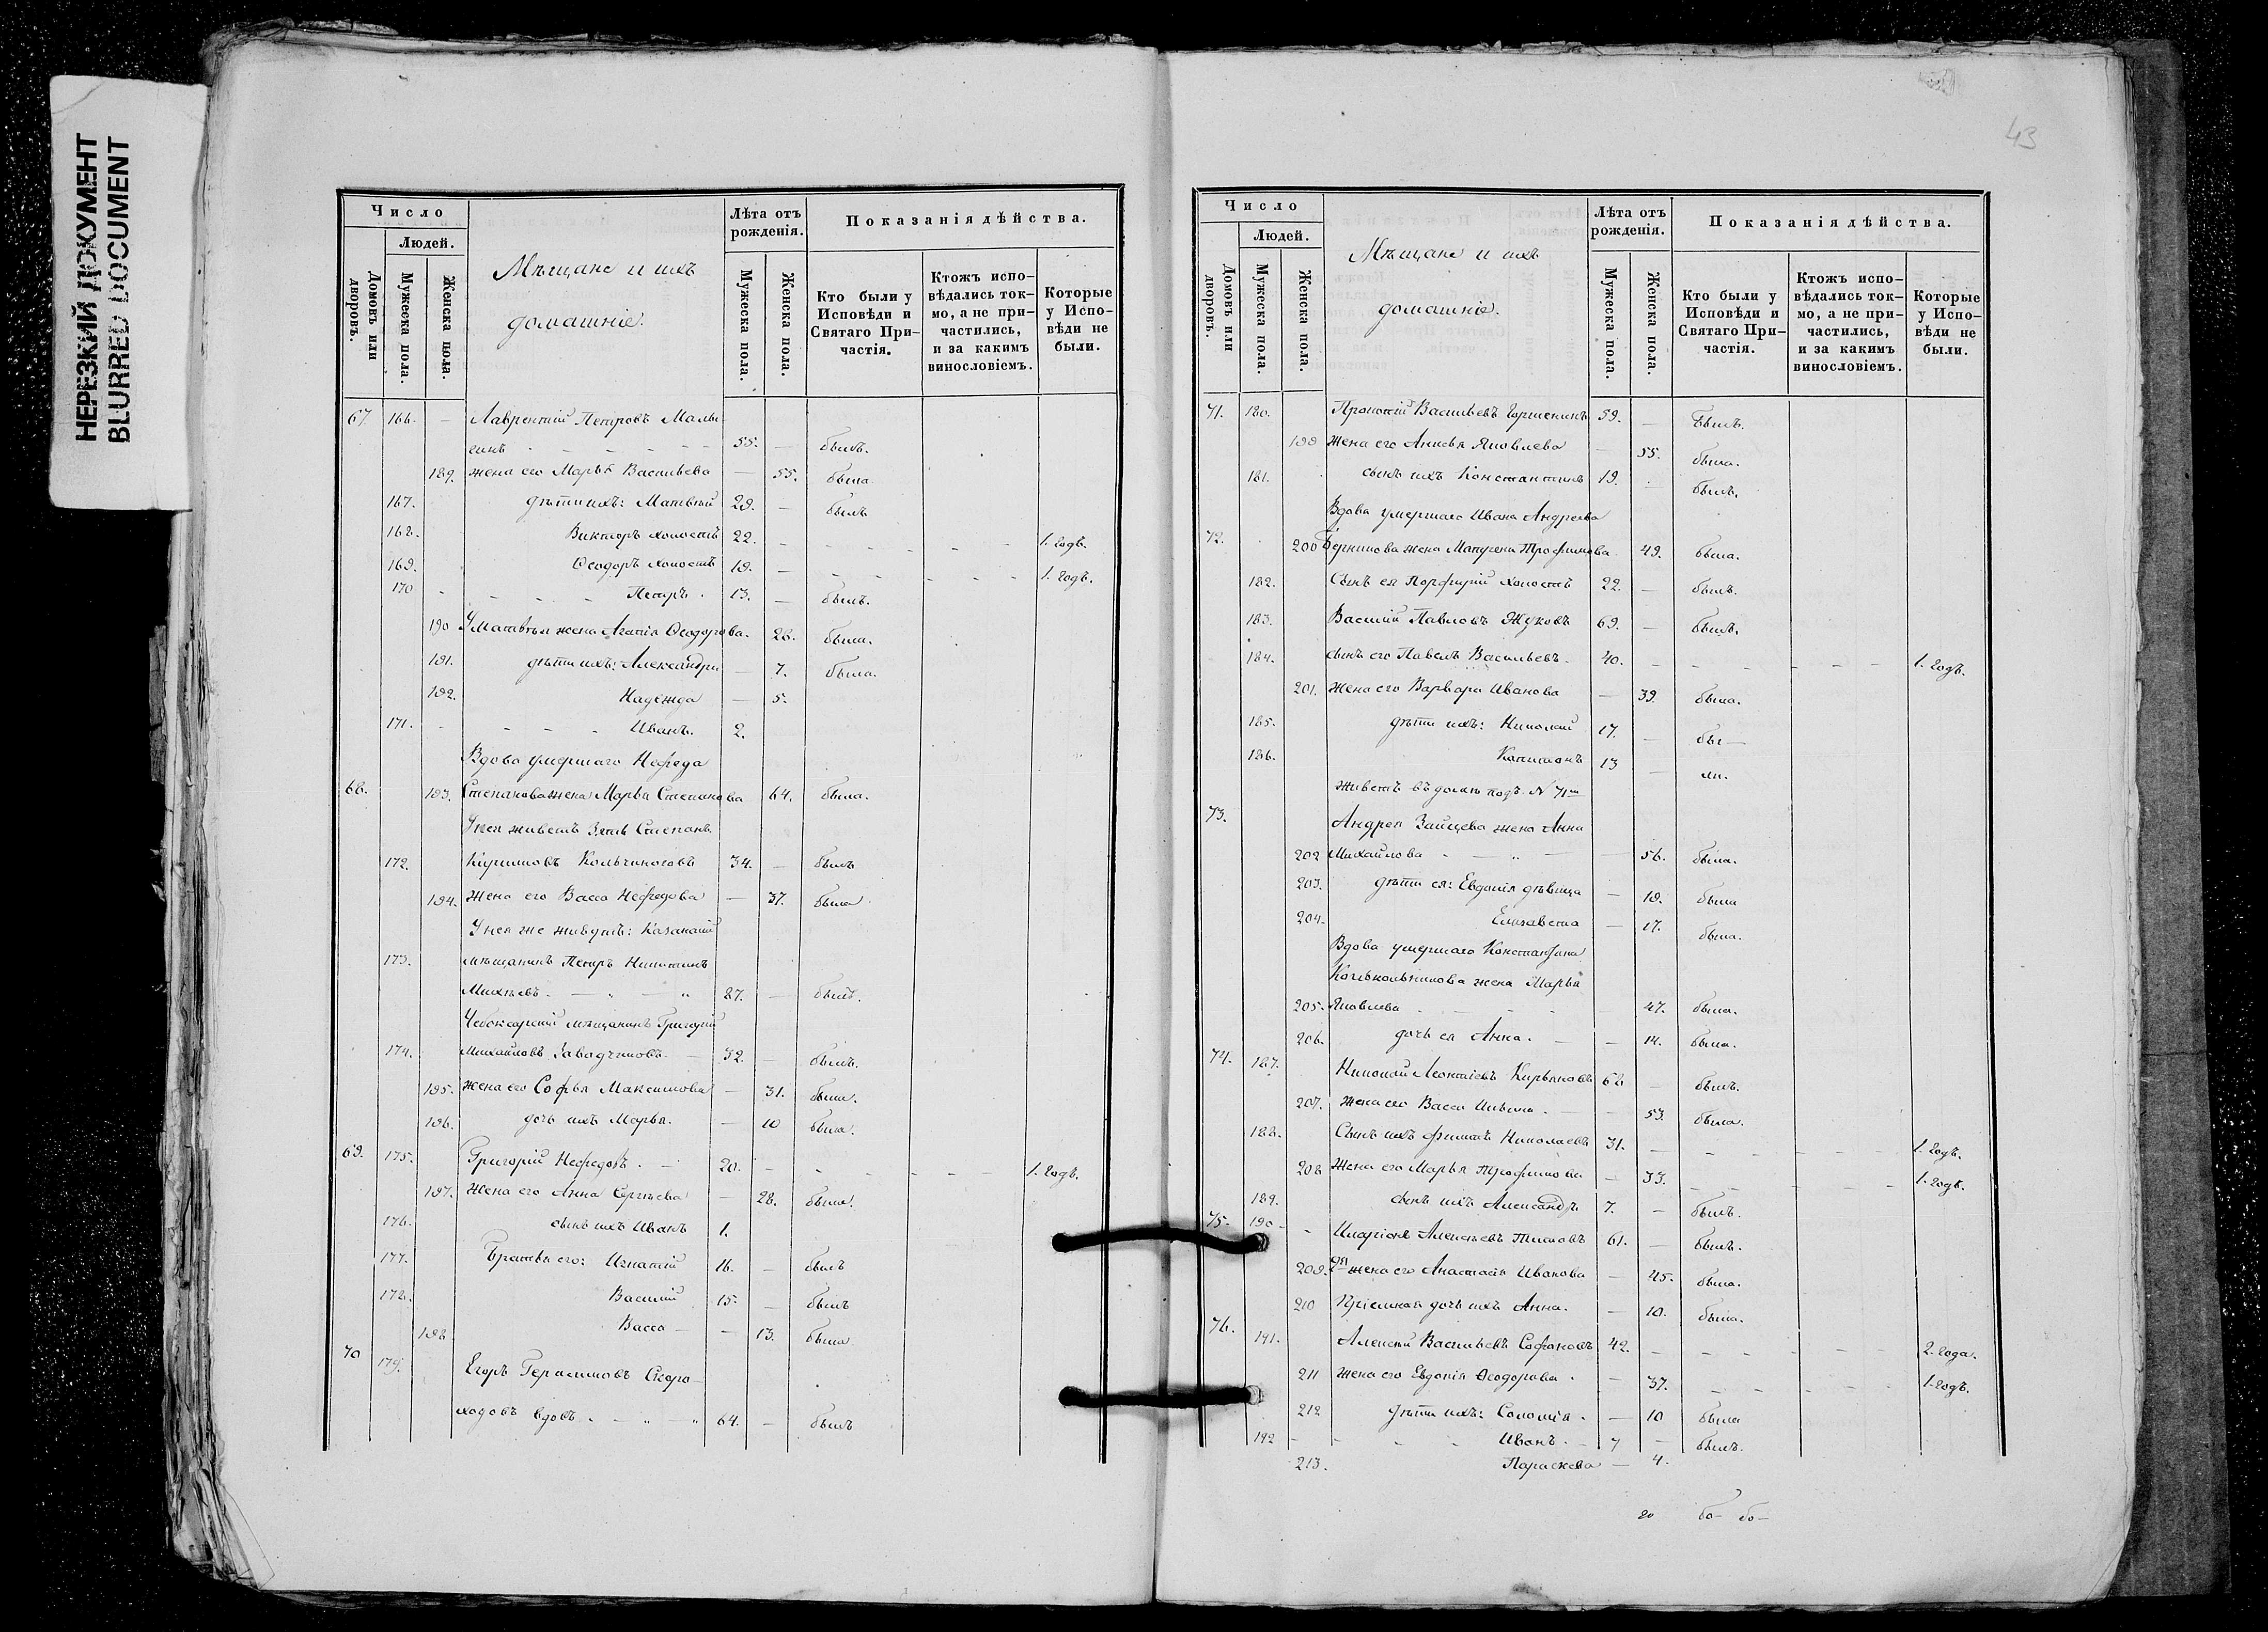 НЕРЕЗКИЙ ДОКУМЕНТ
BLURRED DOCUMENT
Число
Людей.
Домовъ или дворовъ.
Мужеска пола.
Женска пола.
Мѣщане и ихъ
домашніе.
Лѣта отъ рожденія.
Мужеска пола.
Женска пола.
Показанія дѣйства.
Кто были у Исповѣди и Святаго При-частія.
Ктожъ испо-вѣдались ток-мо, а не при-частились, и за какимъ винословіемъ.
Которые у Испо-вѣди не были.
67. 166. — Лаврентій Петровъ Малы-
гинъ 55. — былъ.
189. жена его Марья Васильева — 55. была
167. дѣти ихъ: Матвѣй 29. — былъ
168. Викторъ холостъ 22. — 1. годъ.
169. Ѳеодоръ холостъ 19. — 1. годъ.
170 Петръ. 13. — былъ.
190 У Матвѣя жена Агапія Ѳеодорова. 28. была.
191. дѣти ихъ: Александра — 7. была.
192. Надежда — 5.
171. Иванъ. 2.
Вдова умершаго Нефеда
68. 193. Степанова жена Марья Степанова 64. была.
У нея живетъ зять Степанъ
172. 34. — былъ
194. жена его Васса Нефедова — 37. была
У нея же живутъ: Казанскій
173. мѣщанинъ Петръ Никитинъ
Михѣевъ. 27. — былъ.
Чебоксарскій мѣщанинъ Григорій
174. Михайловъ Завадчиковъ 32. — былъ.
195. жена его Софья Максимова — 31. была.
196. дочь ихъ Марья. — 10 была.
69. 175. Григорій Нефедовъ. 20. — 1. годъ.
197. Жена его Анна Сергѣева — 28. была.
176. сынъ ихъ Иванъ 1.
177. Братья его: Игнатій 16. — былъ
178. Василій 15. — былъ
198 Васса — 13. была
70 179. Егоръ Герасимовъ Скоро-
ходовъ вдовъ 64. — былъ
43
Число
Людей.
Домовъ или дворовъ.
Мужеска пола.
Женска пола.
Мѣщане и ихъ
домашніе.
Лѣта отъ рожденія.
Мужеска пола.
Женска пола.
Показанія дѣйства.
Кто были у Исповѣди и Святаго При-частія.
Ктожъ испо-вѣдались ток-мо, а не при-частились, и за какимъ винословіемъ.
Которые у Испо-вѣди не были.
71. 180. Прокопій Васильевъ Горшенинъ 59. — Былъ.
199 жена его Анисья Яковлева — 55. была.
181. сынъ ихъ Константинъ 19. — былъ.
Вдова умершаго Ивана Андреева
72. 200 жена Матрена Трофимова 49. была.
182. Сынъ ея Порфирій холостъ 22. — былъ.
183. Василій Павловъ Жуковъ 69. — былъ.
184. сынъ его Павелъ Васильевъ 40. — 1. годъ.
201. Жена его Варвара Иванова — 39. была.
185. дѣти ихъ: Николай 17. — бы—
186. Капитонъ 13 — ли.
живетъ въ домѣ подъ N 71мъ
73. Андрея Зайцева жена Анна
202 Михайлова — 56. была.
203. дѣти ея: Евдокія дѣвица — 19. была
204. Елизавета — 17. была.
Вдова умершаго Константина
Колокольникова жена Марья
205. Яковлева 47. была.
206. дочь ея Анна. — 14. была.
74. 187. Николай Леонтіевъ Кирьяновъ 62 — былъ.
207. Жена его Васса Ильина. — 53. была.
188. Сынъ ихъ Филиппъ Николаевъ 31. — 1. годъ.
208 Жена его Марья Трофимова — 33. 1. годъ.
189. сынъ ихъ Александръ 7. — былъ.
75. 190 Иларіонъ Алексѣевъ Титовъ 61. — былъ.
209. 2я жена его Анастасія Иванова — 45. была.
210 Пріемная дочь ихъ Анна. — 10. была.
76. 191. Алексѣй Васильевъ Софоновъ 42. — 2. года.
211 жена его Евдокія Ѳеодорова. — 37. 1. годъ.
212 дѣти ихъ: Соломія. — 10 была
192 Иванъ. 7 — былъ.
213. Параскева — 4.
20 бо— бо—